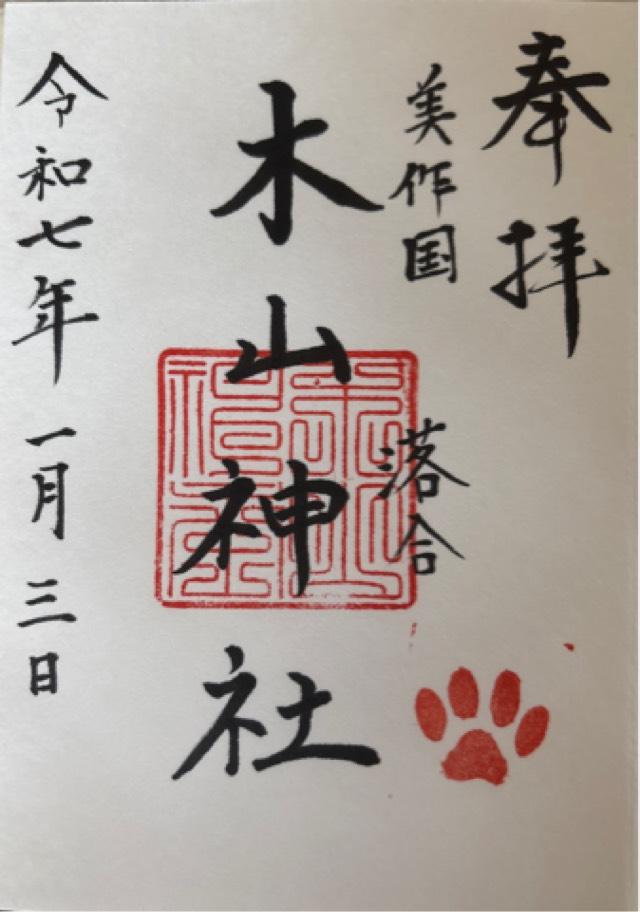 奉拝
美作国 落合
木山神社
令和七年 一月 三日